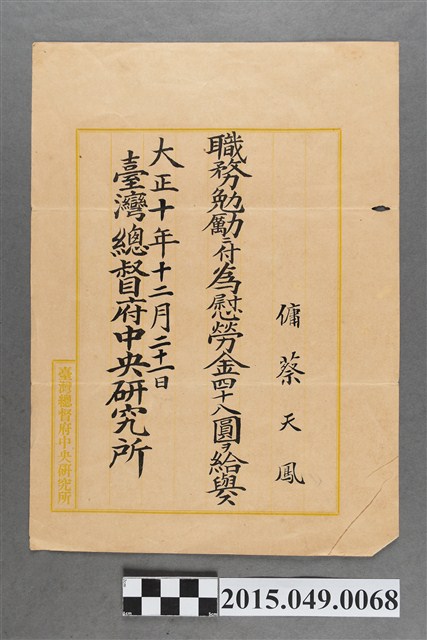 傭 蔡天鳳
職務勉勵ニ付為慰勞金四十八圓ヲ給與ス
大正十年十二月二十一日
臺灣總督府中央研究所
臺灣總督府中央研究所
2015.049.0068